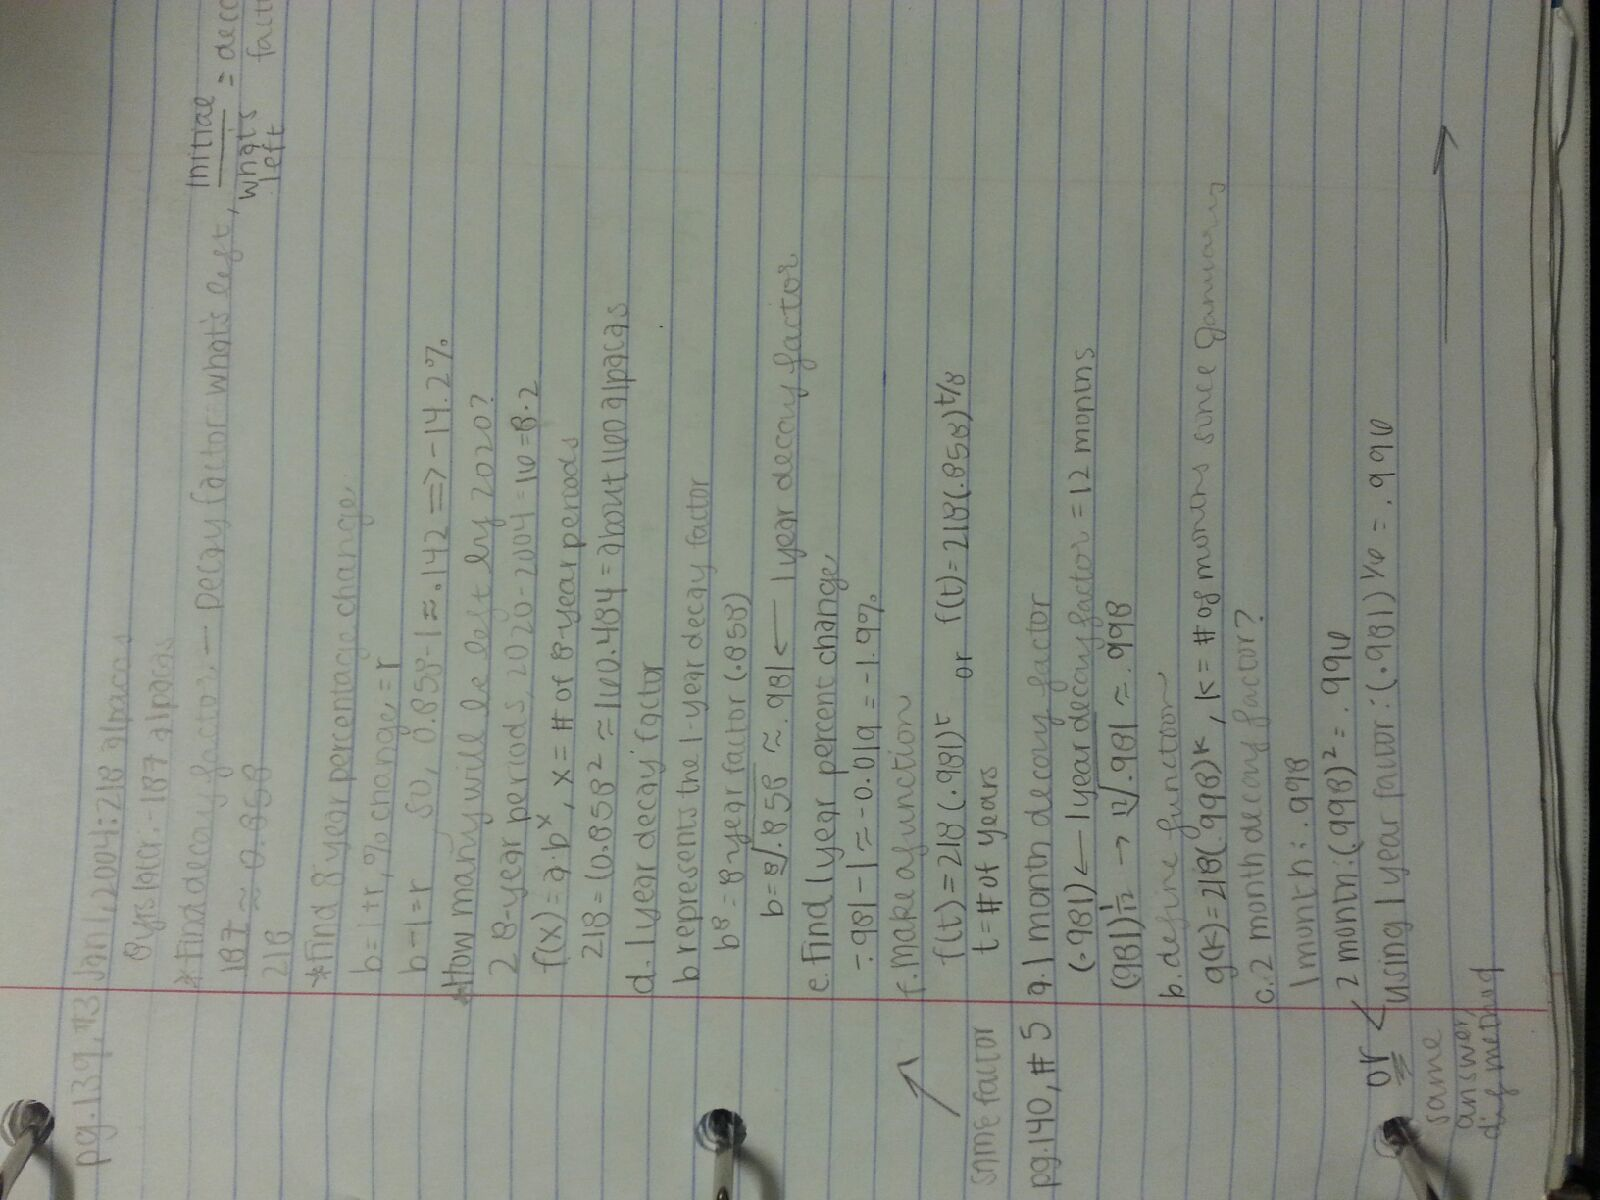 pg.139, #3 Jan 1, 2004: 218 alpacas
8 yrs later - 187 alpacas
* Find decay factor. — Decay factor: what's left,
Initial
what's left
= deca
fact
187 ≈ 0.858
218
* Find 8 year percentage change.
b = 1+r, % change = r
b-1 = r so, 0.858-1 ≈ -.142 => -14.2%
* How many will be left by 2020?
2 8-year periods, 2020-2004 = 16 = 8·2
f(x) = a·b^x, x = # of 8-year periods
218 = (0.858² ≈ 160.484 = about 160 alpacas
d. 1 year decay factor
b represents the 1-year decay factor
b⁸ = 8-year factor (.858)
b = ⁸√.858 ≈ .981 ← 1 year decay factor
e. Find 1 year percent change.
-.981-1 ≈ -0.019 = -1.9%
f. make a function
f(t) = 218(.981)^t or f(t) = 218(.858)^t/8
same factor
t = # of years
pg.140, #5 a. 1 month decay factor
(.981) ← 1 year decay factor = 12 months
(.981)^1/12 → ¹²√.981 ≈ .998
b. define function
g(k) = 218(.998)^k, k = # of months since January
c. 2 month decay factor?
1 month: .998
2 month: (.998)² = .996
or
using 1 year factor: (.981)^1/6 = .996
same
answer,
diff method